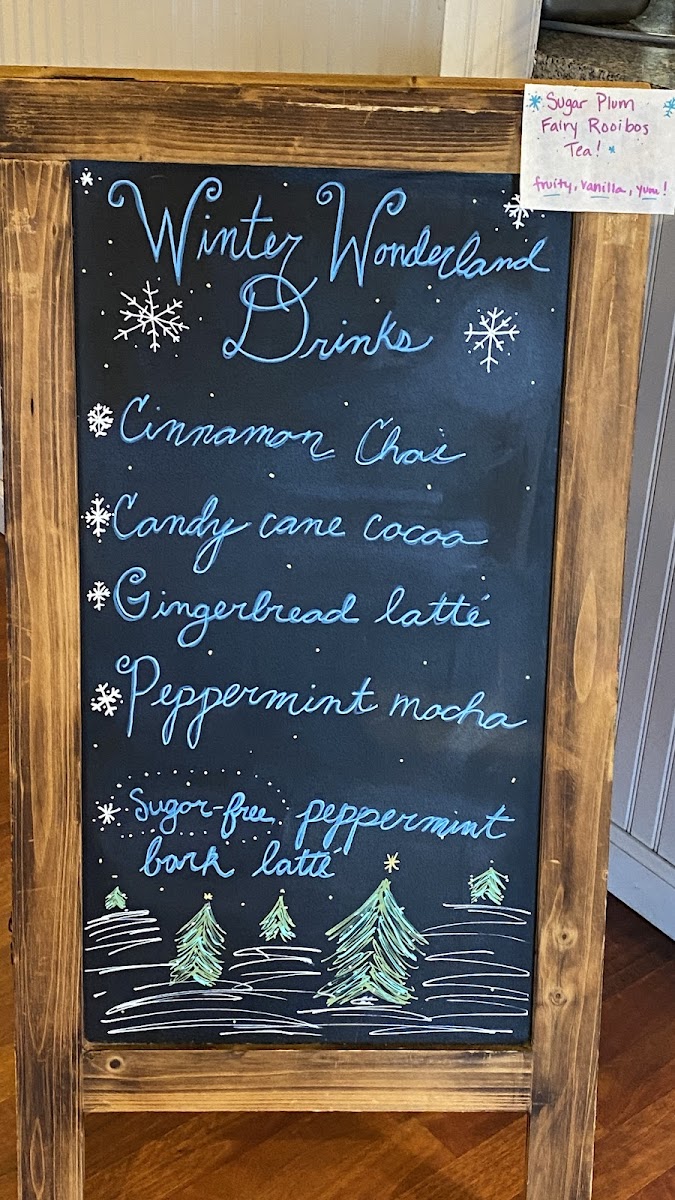 Sugar Plum
Fairy Rooibos
Tea!
fruity, vanilla, yum!
Winter Wonderland
Drinks
Cinnamon Chai
Candy cane cocoa
Gingerbread latté
Peppermint mocha
Sugar-free peppermint
bark latté